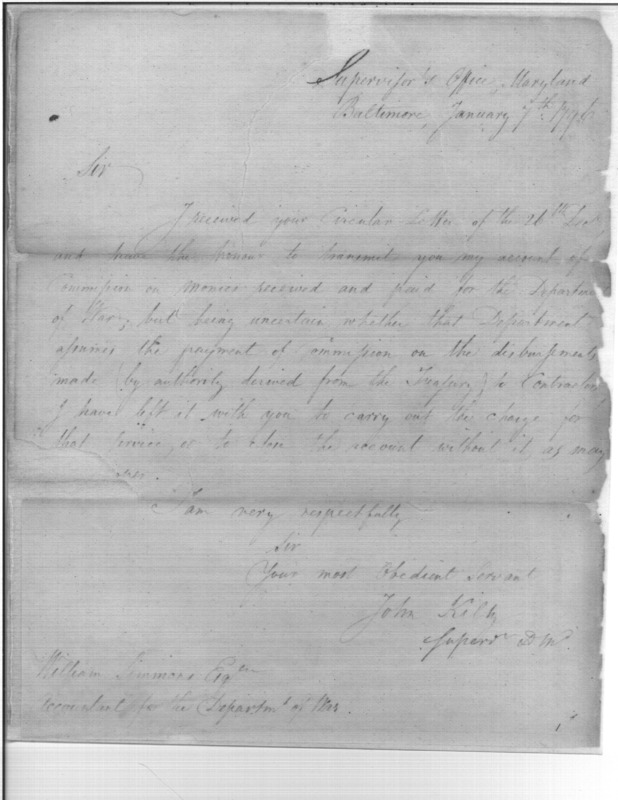 Supervisor's Office, Maryland
Baltimore, January 7th 1796
Sir
I received your Circular Letter of the 26th
and have the honour to transmit you my account of
Commission on monies received and paid for the Departm
of War; but being uncertain whether that Department
assumes the payment of Commission on the disbursements
made (by authority derived from the Treasury) to Contractors
I have left it with you to carry out the charge for
that service, or to close the account without it as may

I am very respectfully
Sir
Your most Obedient Servant
John Kilty
Superv.r D M.
William Simmons Esq
Accountant for the Departm.t of War.